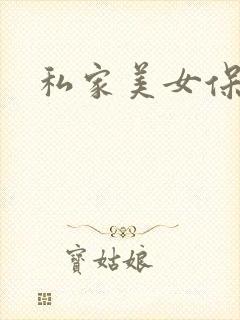 私家美女保
寶姑娘